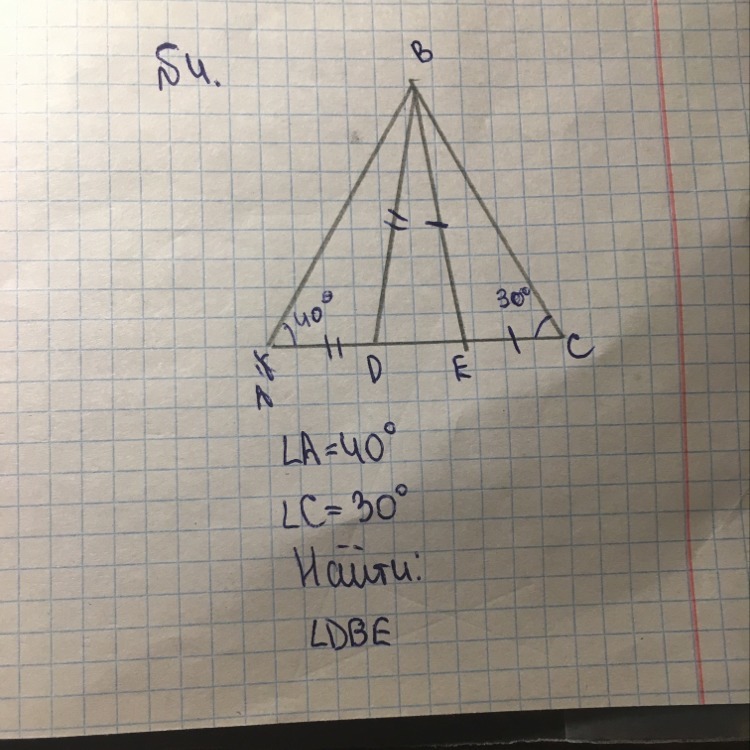 №4.
B
40° 30°
D E C
A
∠A=40°
∠C=30°
Найти:
∠DBE